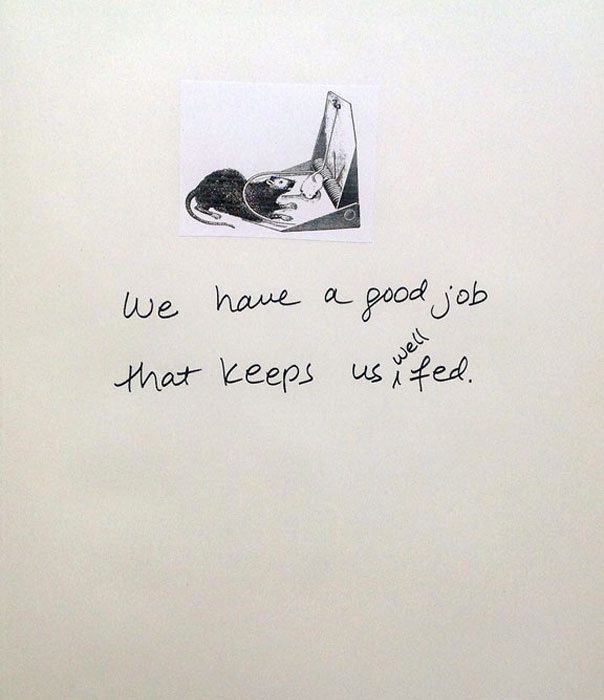 We have a good job
that keeps us well fed.